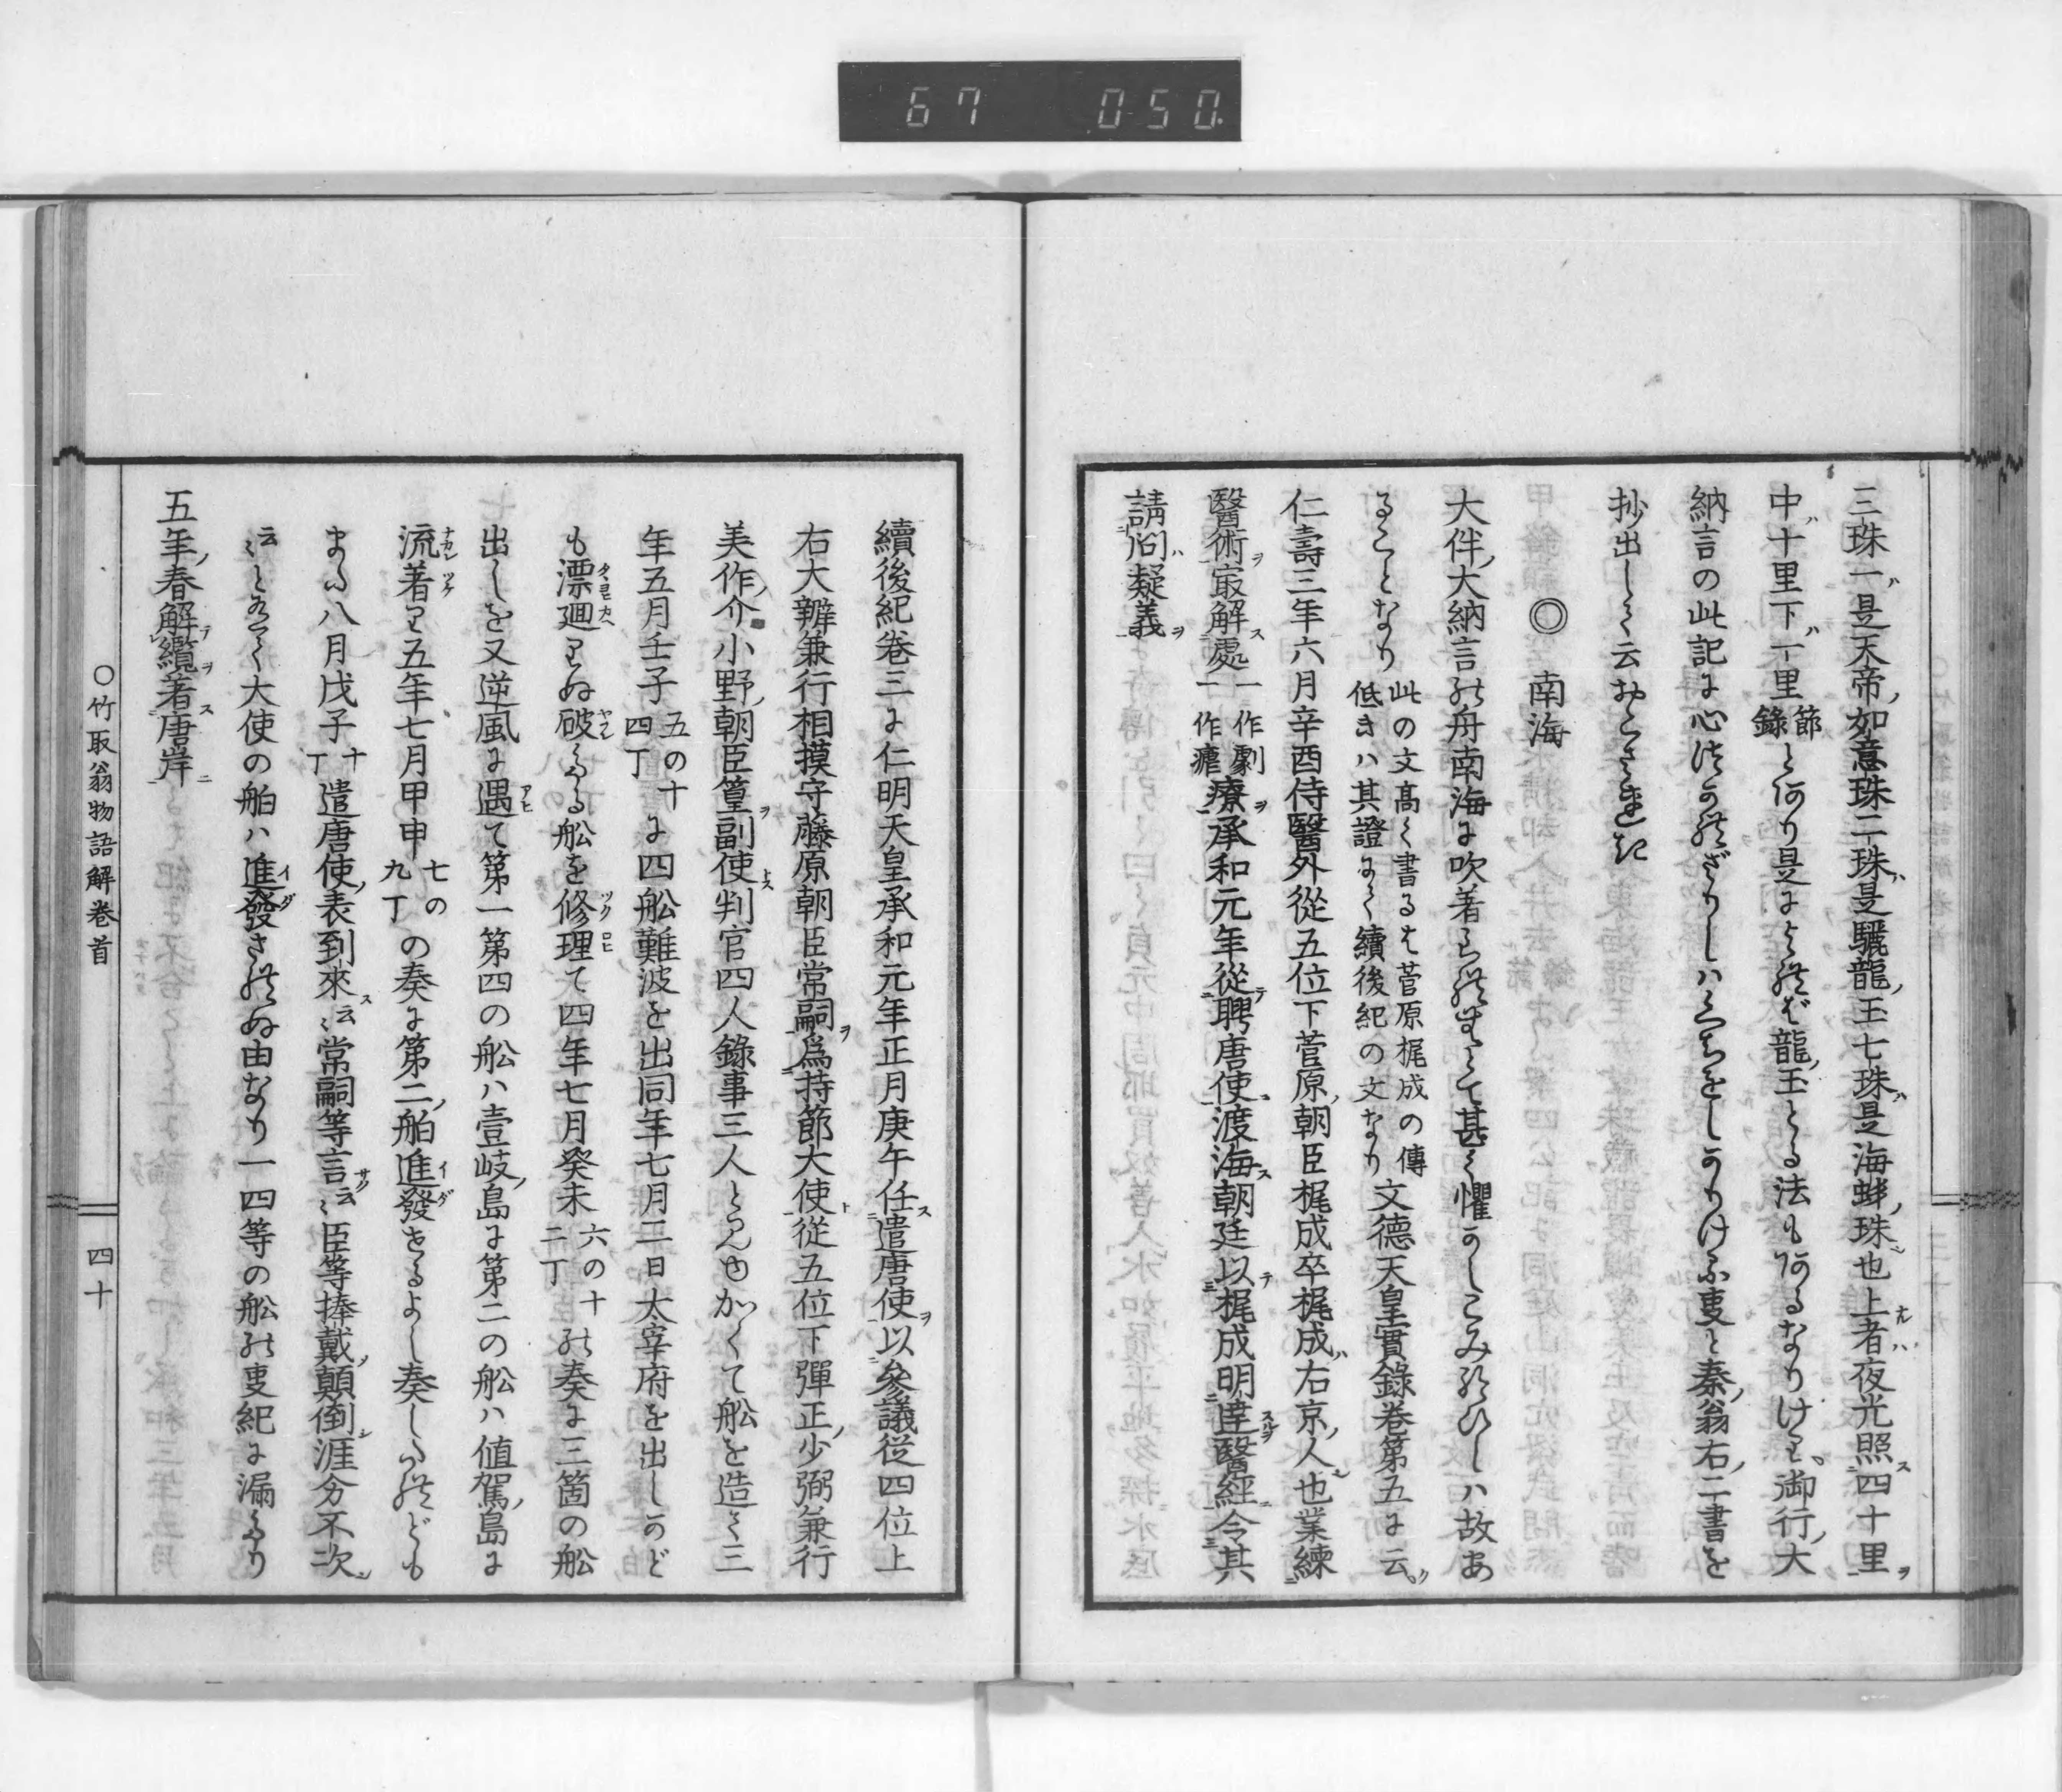 67 0-50.
三珠一ハ是天帝ノ如意珠二珠ハ是驪龍ノ玉七珠ハ是海蚌ノ珠也上者夜光照四十里ヲ
中ハ十里下ハ一里 節錄 と何り是によれば龍ノ玉とる法も何るなりけり御行ノ大
納言の此記に心はつかれざりしハ
秦ノ翁右ノ二書を
抄出しく云おこされき
◎ 南海
大伴ノ大納言の舟南海に吹著られたまとて甚く懼かしこみたひしハ故あ
ることなり 此の文高く書るは菅原梶成の傳 低きハ其證にて續後紀の文なり 文德天皇實錄卷第五に云ク
仁壽三年六月辛酉侍醫外從五位下菅原ノ朝臣梶成卒梶成ハ右京ノ人也業練
醫術ヲ㝡解處 一作劇 一作瘧 療ヲ承和元年從聘唐使渡海ス朝廷以梶成明達醫經令其
請問疑義ヲ
續後紀卷三に仁明天皇承和元年正月庚午任ス遣唐使ヲ以參議從四位上
右大辨兼行相摸守藤原朝臣常嗣ヲ爲持節大使ト從五位下彈正ノ少弼兼行
美作ノ介小野ノ朝臣篁ヲ副使トス判官四人錄事三人とみゆかくて舩を造て三
年五月壬子 五の十四丁 に四舩難波を出同年七月二日太宰府を出しかど
も漂廻りぬ破たる舩を修理て四年七月癸未 六の十二丁 の奏に三箇の舩
出しを又逆風に遇て第一第四の舩ハ壹岐ノ島に第二の舩ハ値駕ノ島に
流著り五年七月甲申 七の九丁 の奏に第二ノ舶進發せるよし奏したれども
また八月戊子 十丁 遣唐使ノ表到來ス云々常嗣等言サク云々臣等捧戴ノ顛倒シ涯分不次
云々となく大使の舶ハ進發されぬ由なり一四等の舩の叓紀に漏たり
五年ノ春解纜ヲ著ス唐岸ニ
○竹取翁物語解卷首
四十